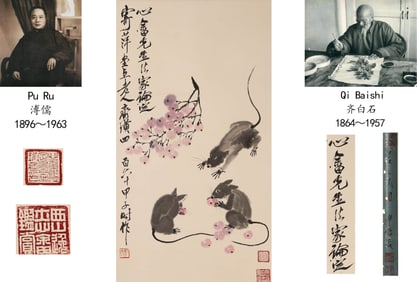 Pu Ru
溥儒
1896～1963
心畬先生法家論定
寄萍堂上老人齊璜四
百六十甲子時作
Qi Baishi
齐白石
1864～1957
心畬先生法家論定